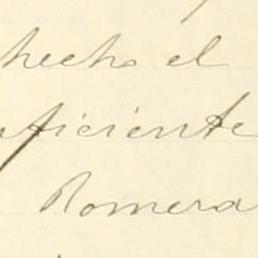 hecho el
uficiente
Romera